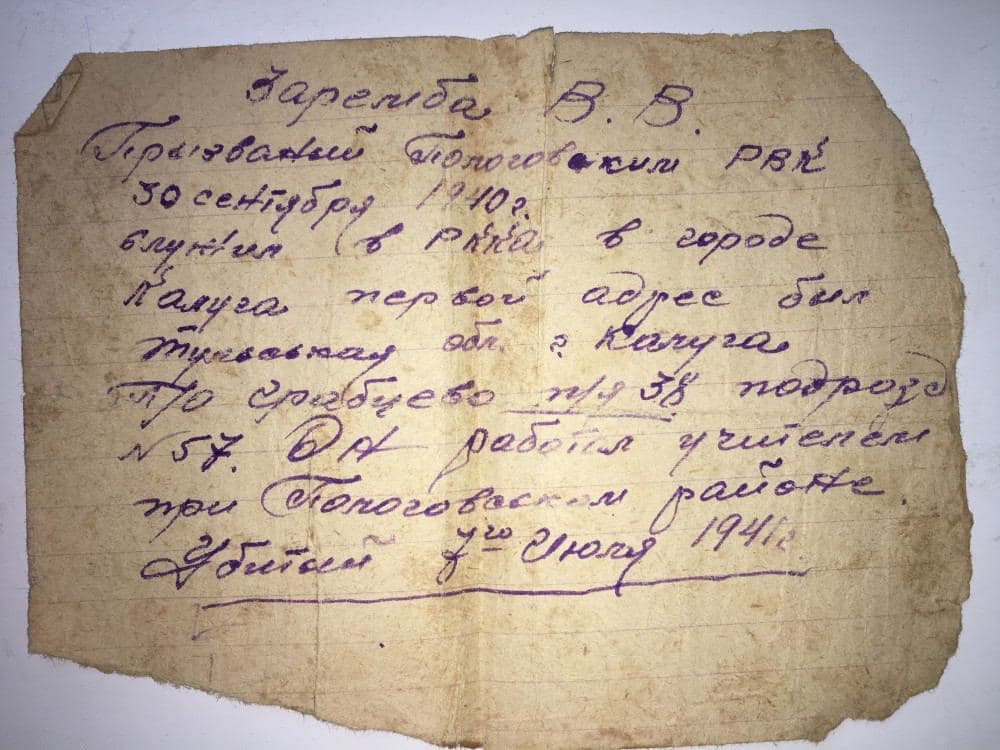 Заремба В. В.
Призваный Пологовским РВК
30 сентября 1940 г.
служил в РККА в городе
Калуга первой адрес был
Тульськая обл. г Калуга
П/О Грабцево п/я 38 подрозд
N 57. Он работал учителем
при Пологовськом районе.
Убитый 7го Июля 1941 г.